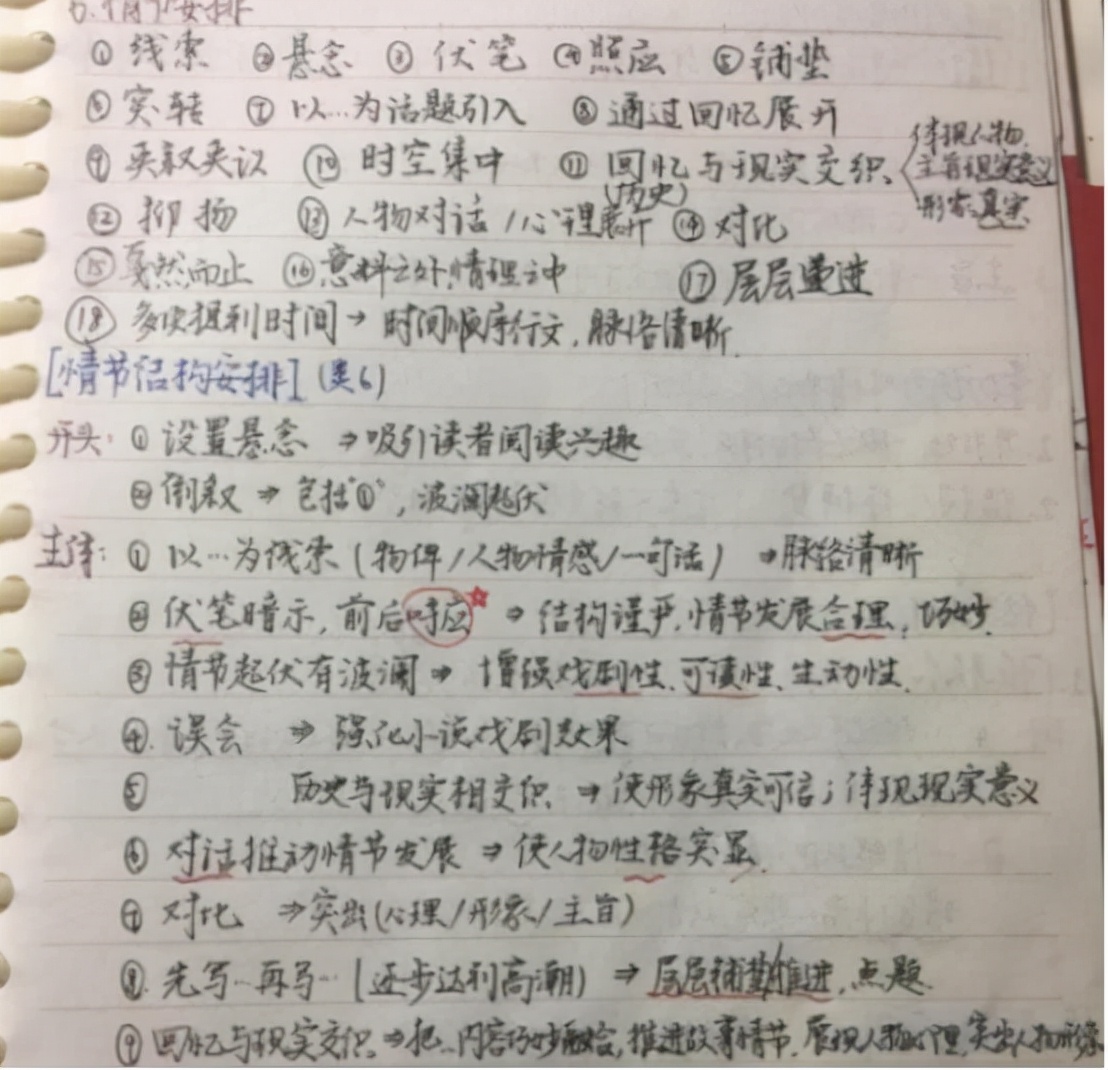 6.情节安排
①线索 ②悬念 ③伏笔 ④照应 ⑤铺垫
⑥突转 ⑦以…为话题引入 ⑧通过回忆展开
⑨夹叙夹议 ⑩时空集中 ⑪回忆与现实交织、体现人物
主旨现实意义
形象真实
(历史)
⑫抑扬 ⑬人物对话/心理展开 ⑭对比
⑮戛然而止 ⑯意料之外,情理之中 ⑰层层递进
⑱多次提到时间→时间顺序行文,脉络清晰.
[情节结构安排](类6)
开头:①设置悬念 ⇒吸引读者阅读兴趣
②倒叙⇒包括"①",波澜起伏
主体:①以…为线索(物件/人物情感/一句话) ⇒脉络清晰
②伏笔暗示,前后呼应 ⇒结构谨严,情节发展合理,巧妙.
③情节起伏有波澜⇒增强戏剧性、可读性、生动性.
④.误会 ⇒强化小说戏剧效果
⑤ 历史与现实相交织 ⇒使形象真实可信;体现现实意义
⑥对话推动情节发展⇒使人物性格突显.
⑦对比 ⇒突出(心理/形象/主旨)
⑧.先写…再写…(逐步达到高潮) ⇒层层铺垫/推进,点题.
⑨回忆与现实交织⇒把…内容巧妙融合,推进故事情节.展现人物心理,突出人物形象